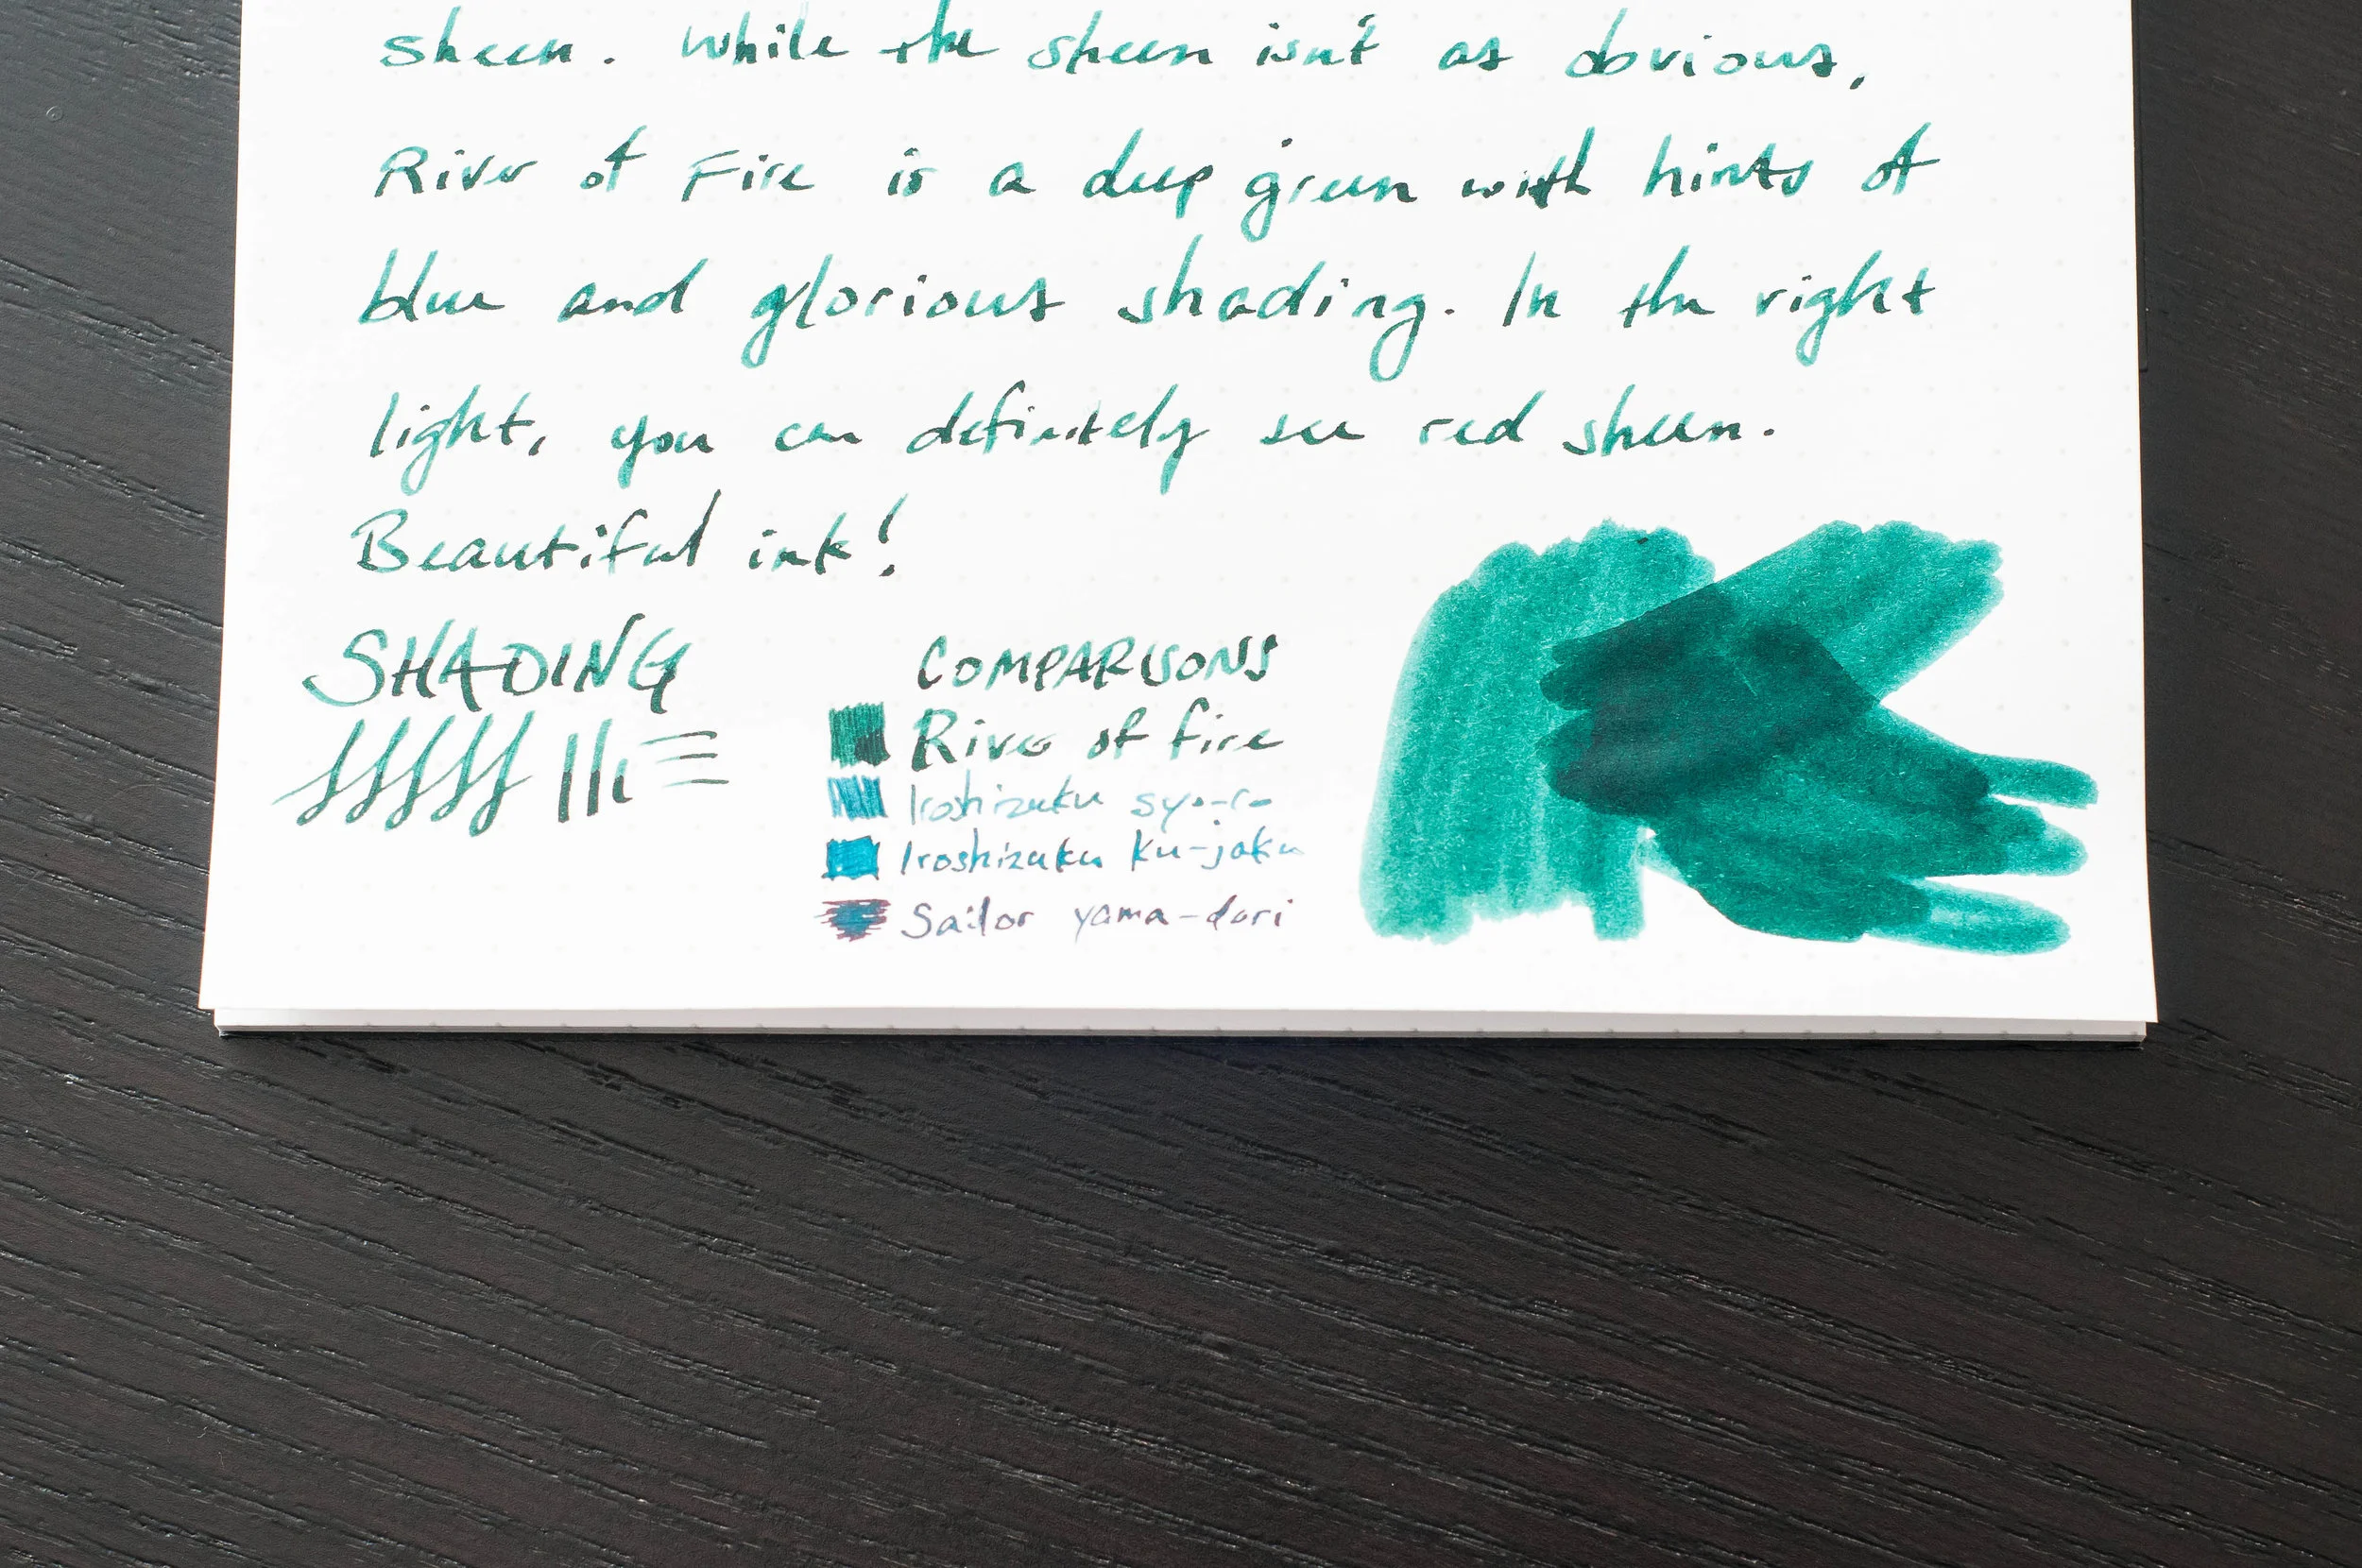 sheen. While the sheen isn't as obvious,
River of Fire is a deep green with hints of
blue and glorious shading. In the right
light, you can definitely see red sheen.
Beautiful ink!
SHADING
COMPARISONS
River of fire
Iroshizuku syo-ro
Iroshizuku Ku-jaku
Sailor yama-dori